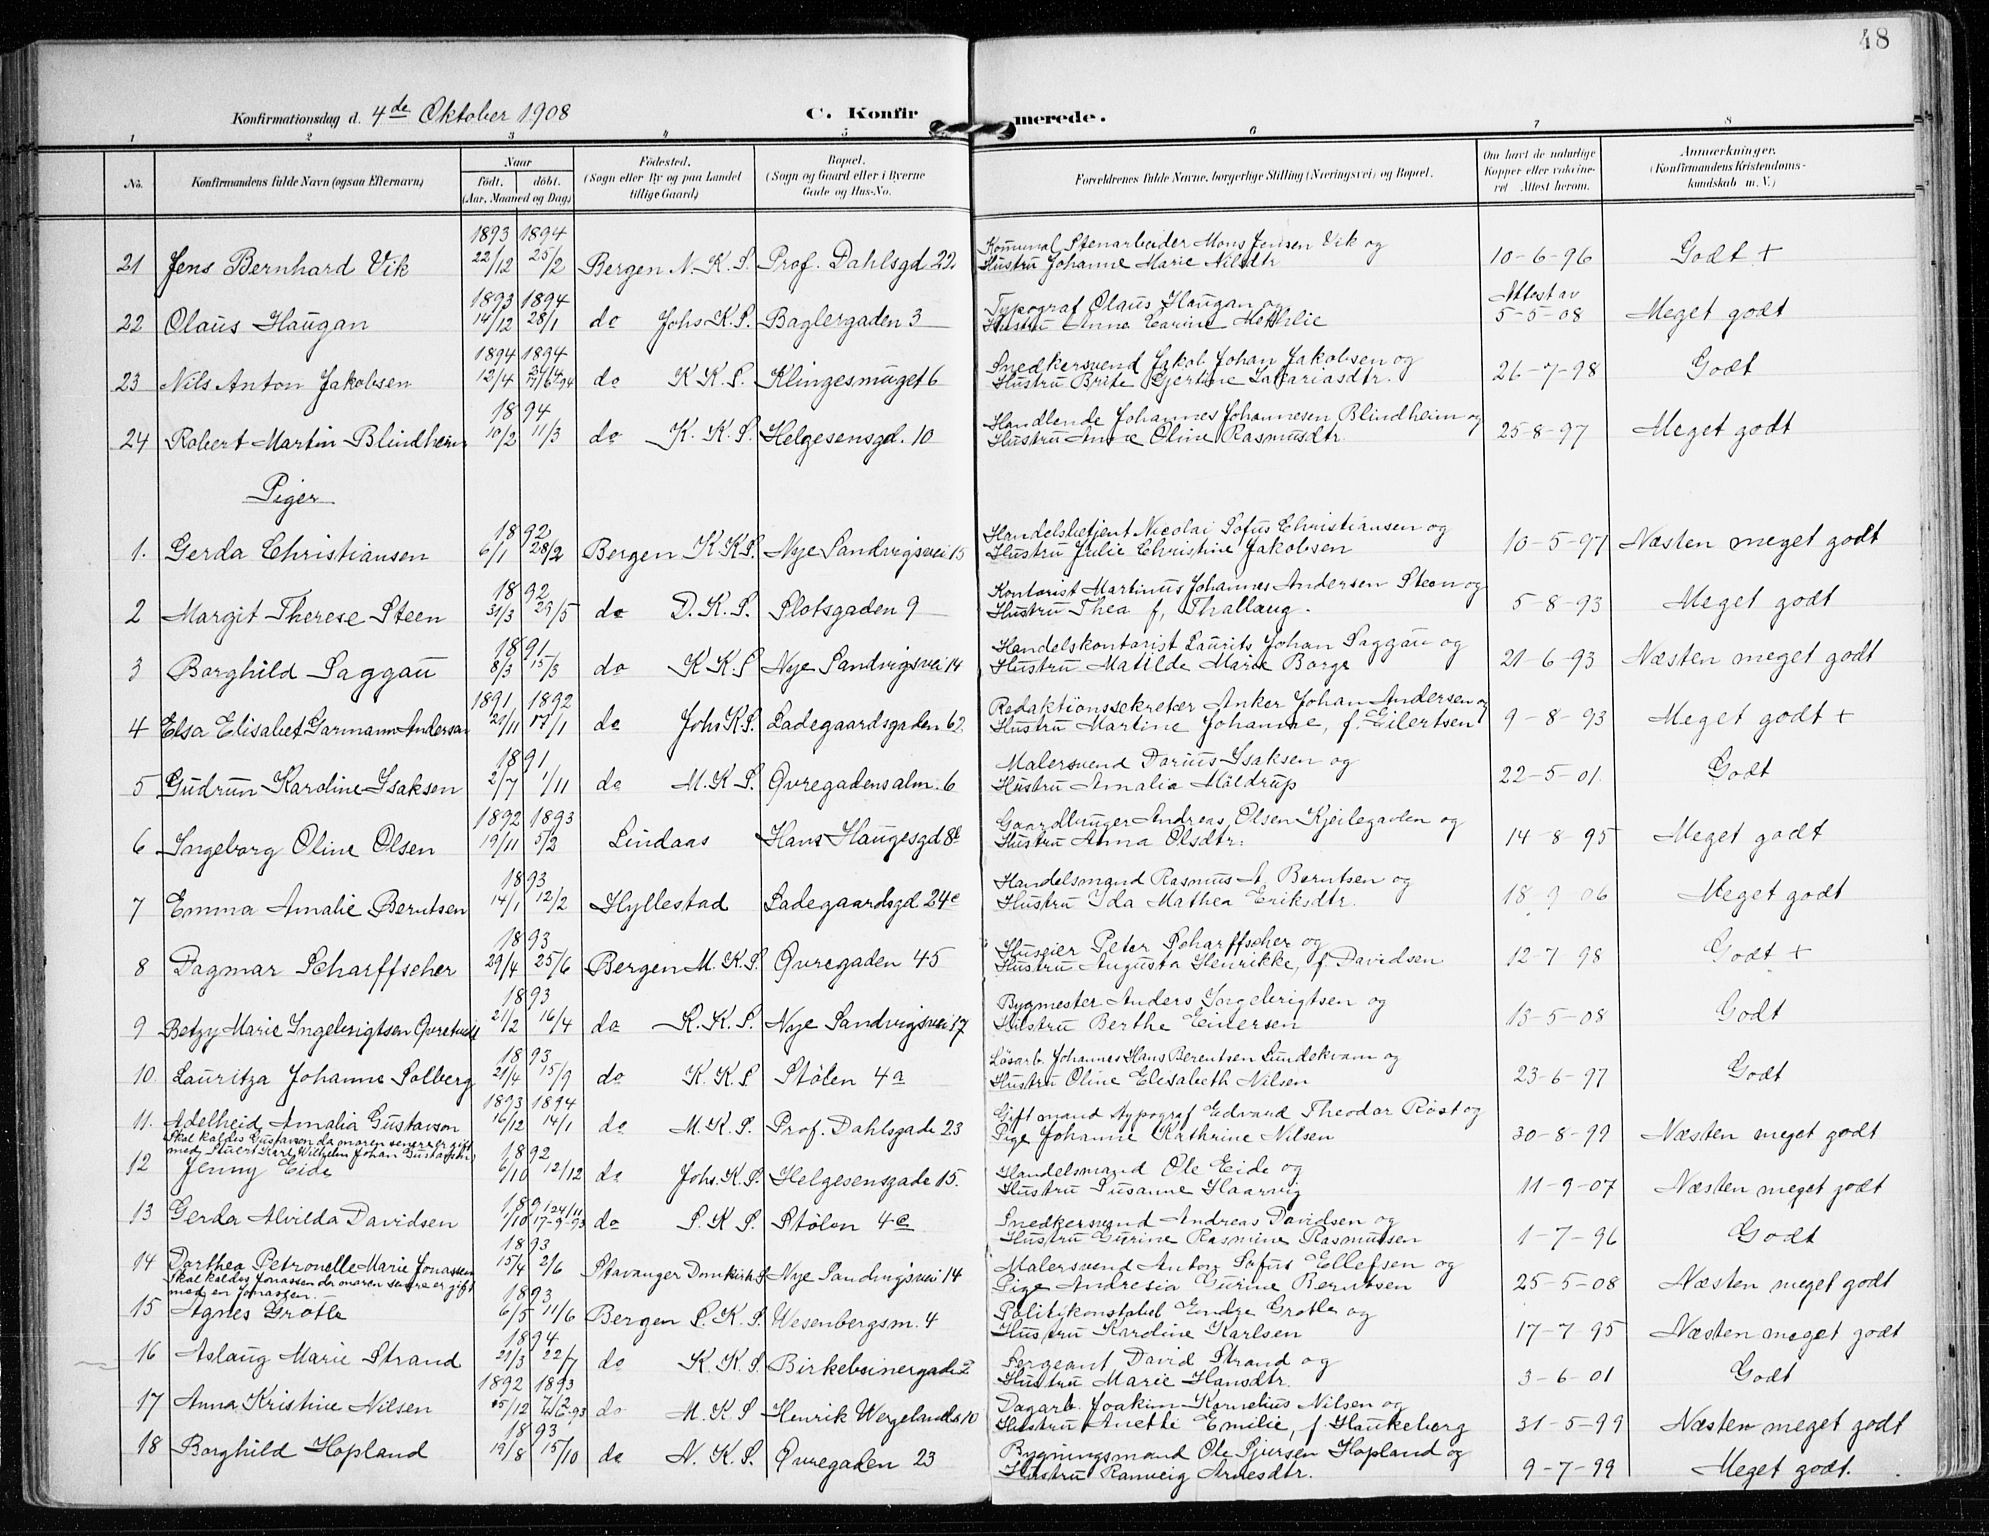 48
Konfirmationsdag d. 4de Oktober 1908 C. Konfirmerede.
1 2 3 4 5 6 7 8
No. Konfirmandens fulde Navn (ogsaa Efternavn) Naar født. døbt. (Aar, Maaned og Dag) Fødested. (Sogn eller By og paa Landet tillige Gaard) Bopæl. (Sogn og Gaard eller i Byerne Gade og Hus-No. Forældrenes fulde Navne, borgerlige Stilling (Næringsvei) og Bopæl. Om havt de naturlige Kopper eller vaccineret Attest herom. Anmærkninger. (Konfirmandens Kristendomskundskab m. V.)
1893 1894
21 Jens Bernhard Vik 22/12 25/2 Bergen N. K. S. Prof. Dahlsgd 22 Komunal Stenarbeider Mons Jensen Vik og Hustru Johanne Marie Nilsdtr 10-6-96 Godt +
1893 1894
22 Olaus Haugan 14/12 28/1 do Johs K. S. Baglergaden 3 Typograf Olaus Haugan og Hustru Anna Carine Methlie Attest av 5-5-08 Meget godt
1894 1894
23 Nils Anton Jakobsen 12/4 do K K. S. Klingesmuget 6 Snedkersvend Jakob Johan Jakobsen og Hustru Brite Gjertine Zakariasdtr. 26-7-98 Godt
1894
24 Robert Martin Blindheim 10/2 11/3 do K. K. S. Helgesensgd. 10 Handlende Johannes Johannesen Blindheim og Hustru Anne Oline Rasmusdtr. 25-8-97 Meget godt
Piger
1892
1. Gerda Christiansen 6/1 28/2 Bergen K K S. Nye Sandvigsvei 15 Handelsbetjent Nicolai Sofus Christiansen og Hustru Julie Christine Jakobsen 10-5-97 Næsten meget godt
1892
2 Margit Therese Steen 31/3 29/5 do D. K. S. Slotsgaden 9 Kontorist Martinus Johannes Andersen Steen og Hustru Thea f. Thallaug. 5-8-93 Meget godt
1891
3 Borghild Saggau 8/3 15/3 do K K S Nye Sandvigsvei 14 Handelskontorist Laurits Johan Saggau og Hustru Matilde Marie Borge 21-6-93 Næsten meget godt
1891 1892
4 Elsa Elisabet Garmann Andersen 20/11 17/1 do Johs K S. Ladegaardsgaden 62 Redaktionssekretær Anker Johan Andersen og Hustru Martine Johanne, f. Eilertsen 9-8-93 Meget godt +
1891
5 Gudrun Karoline Isaksen 2/7 1/11 do M. K S. Øvregadensalm. 6 Malersvend Darius Isaksen og Hustru Amalia Möldrup 22-5-01. Godt
1892 1893
6 Ingeborg Oline Olsen 19/11 5/2 Lindaas Hans Haugesgd 8e Gaardbruger Andreas Olsen Kjeilegavlen og Hustru Anna Olsdtr. 14-8-95 Meget godt
1893
7 Emma Amalie Berntsen 14/1 12/2 Hyllestad Ladegaardsgd 24c Handelsmand Rasmus A. Berntsen og Hustru Ida Mathea Eriksdtr. 18-9-06 Meget godt
1893
8 Dagmar Scharffscher 29/4 25/6 Bergen M. K. S. Øvregaden 45 Huseier Peter Scharffscher og Hustru Augusta Henrikke, f. Davidsen 12-7-98 Godt +
1893
9 Betzy Marie Ingebrigtsen Øvretveit 21/2 16/4 do K. K. S. Nye Sandvigsvei 17 Bygmester Anders Ingebrigtsen og Hustru Berthe Einersen 13-5-08 Godt
1893
10. Lauritza Johanne Solberg 21/4 15/9 do K. K S Stølen 4a Løsarb. Johannes Hans Berentsen Lundekvam og Hustru Oline Elisabeth Nilsen 23-6-97 Godt
1893 1894
11. Adelheid Amalia Gustavson 16/12 14/1 do M. K. S. Prof. Dahlsgade 23 Gift mand Typograf Edvard Theodor Røst og Pige Johanne Kathrine Nilsen 30-8-99 Næsten meget godt
Skal kaldes Gustavson da moren senere er gift
med Stuert Karl Wilhelm Johan Gustavson
1892
12 Jenny Eide 6/10 12/12 do Johs. K S. Helgesensgade 15. Handelsmand Ole Eide og Hustru Susanne Haarvig 11-9-07 Næsten meget godt
1891 24/11
13 Gerda Alvilda Davidsen 1/10 17-9-93 do S. K S. Stølen 4c Snedkersvend Andreas Davidsen og Hustru Gurine Rasmine Rasmussen 1-7-96 Godt
1893
14 Dorthea Petronelle Marie Jonassen 15/4 2/6 Stavanger Domkirke S Nye Sandvigsvei 14 Malersvend Anton Sofus Ellefsen og Pige Andresia Gurine Berntsen 25-5-08 Næsten meget godt
Skal kaldes Jonassen da moren senere er gift
med en Jonassen.
1893
15 Agnes Grotle 6/5 11/6 Bergen S. K. S. Wesenbergsm. 4 Politikonstabel Endre Grotle og Hustru Karoline Karlsen 17-7-95 Næsten meget godt
1894
16 Aslaug Marie Strand 21/3 22/7 do K K. S Birkebeinergade 2 Sergeant David Strand og Hustru Marie Hansdtr. 3-6-01 Godt
1892 1893
17 Anna Kristine Nilsen 15/12 do M. K S Henrik Wergelandsg 10 Dagarb. Joakim Kornelius Nilsen og Hustru Anette Emilie, f Haukeberg 31-5-99 Næsten meget godt
1893
18 Borghild Hopland 19/8 15/10 do N. K. S. Øvregaden 23 Bygningsmand Ole Sjursen Hopland og Hustru Ranveig Arnesdtr. 9-7-99 Meget godt.